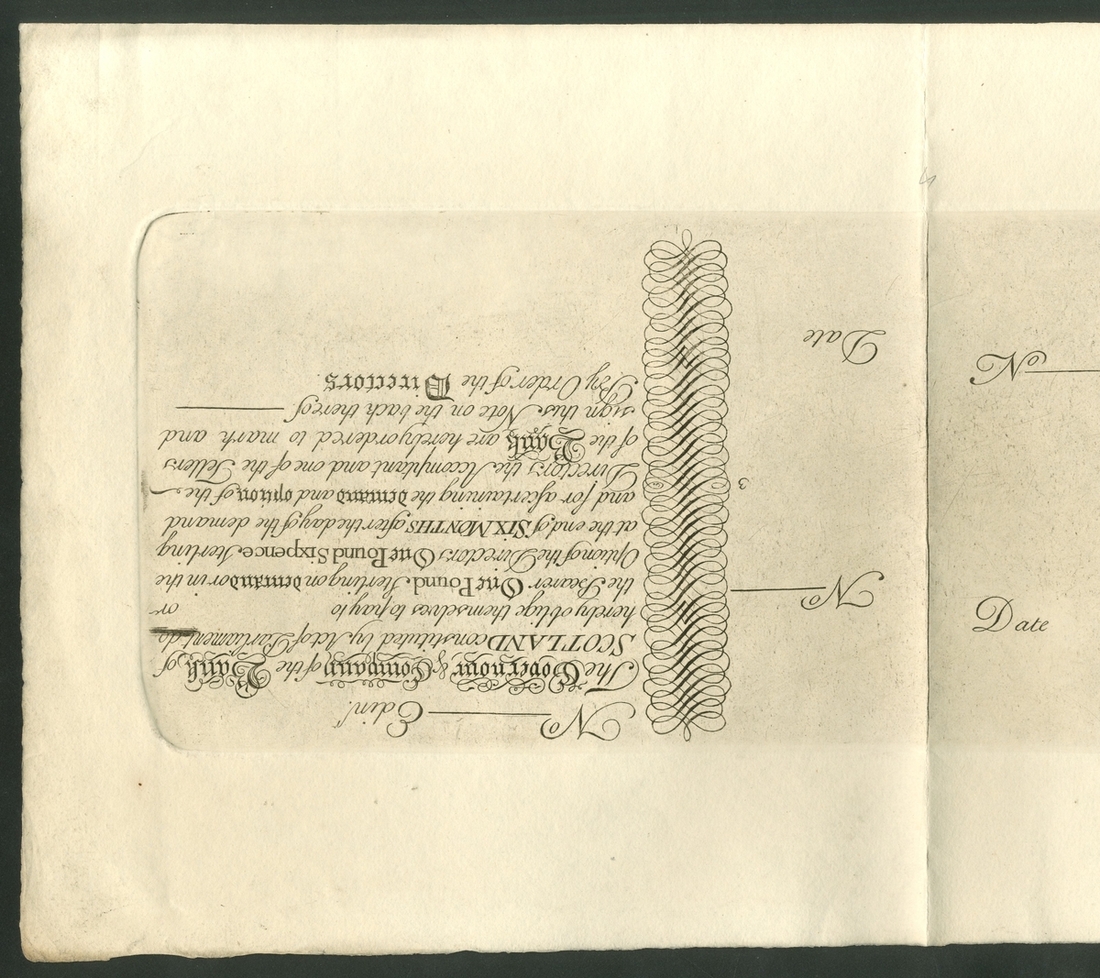 No Edinr
The Governour & Company of the Bank of
SCOTLAND constituted by Act of Parliament do
hereby oblige themselves to pay to or
the Bearer One Pound Sterling on demand or in the
Option of the Directors One Pound Sixpence Sterling
at the end of SIX MONTHS after the day of the demand
and for ascertaining the demand and option of the
Directors the Accomptant and one of the Tellers
of the Bank are hereby ordered to mark and
sign this Note on the back thereof
By Order of the Directors.
No
3
Date
No
Date